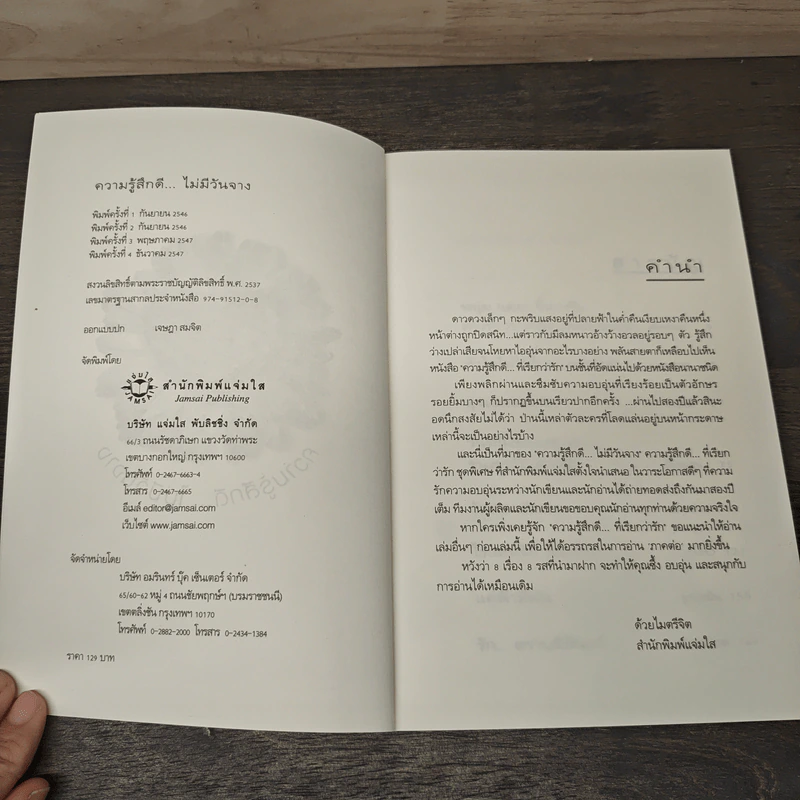 ความรู้สึกดี... ไม่มีวันจาง
พิมพ์ครั้งที่ 1 กันยายน 2546
พิมพ์ครั้งที่ 2 กันยายน 2546
พิมพ์ครั้งที่ 3 พฤษภาคม 2547
พิมพ์ครั้งที่ 4 ธันวาคม 2547
สงวนลิขสิทธิ์ตามพระราชบัญญัติลิขสิทธิ์ พ.ศ. 2537
เลขมาตรฐานสากลประจำหนังสือ 974-91512-0-8
ออกแบบปก เจษฎา สมจิต
จัดพิมพ์โดย
สำนักพิมพ์แจ่มใส
Jamsai Publishing
บริษัท แจ่มใส พับลิชชิ่ง จำกัด
66/3 ถนนรัชดาภิเษก แขวงวัดท่าพระ
เขตบางกอกใหญ่ กรุงเทพฯ 10600
โทรศัพท์ 0-2467-6663-4
โทรสาร 0-2467-6665
อีเมล์ editor@jamsai.com
เว็บไซต์ www.jamsai.com
จัดจำหน่ายโดย
บริษัท อมรินทร์ บุ๊ค เซ็นเตอร์ จำกัด
65/60-62 หมู่ 4 ถนนชัยพฤกษ์ฯ (บรมราชชนนี)
เขตตลิ่งชัน กรุงเทพฯ 10170
โทรศัพท์ 0-2882-2000 โทรสาร 0-2434-1384
ราคา 129 บาท
คำนำ
ดาวดวงเล็กๆ กะพริบแสงอยู่ที่ปลายฟ้าในค่ำคืนเงียบเหงาคืนหนึ่ง
หน้าต่างถูกปิดสนิท...แต่ราวกับมีลมหนาวอ้างว้างอวลอยู่รอบๆ ตัว รู้สึก
ว่างเปล่าเสียจนโหยหาไออุ่นจากอะไรบางอย่าง พลันสายตาก็เหลือบไปเห็น
หนังสือ 'ความรู้สึกดี... ที่เรียกว่ารัก' บนชั้นที่อัดแน่นไปด้วยหนังสือนานาชนิด
เพียงพลิกผ่านและซึมซับความอบอุ่นที่เรียงร้อยเป็นตัวอักษร
รอยยิ้มบางๆ ก็ปรากฏขึ้นบนเรียวปากอีกครั้ง ...ผ่านไปสองปีแล้วสินะ
อดนึกสงสัยไม่ได้ว่า ป่านนี้เหล่าตัวละครที่โลดแล่นอยู่บนหน้ากระดาษ
เหล่านี้จะเป็นอย่างไรบ้าง
และนี่เป็นที่มาของ 'ความรู้สึกดี... ไม่มีวันจาง' ความรู้สึกดี... ที่เรียก
ว่ารัก ชุดพิเศษ ที่สำนักพิมพ์แจ่มใสตั้งใจนำเสนอ ในวาระโอกาสดีๆ ที่ความ
รักความอบอุ่นระหว่างนักเขียนและนักอ่านได้ถ่ายทอดส่งถึงกันมาสองปี
เต็ม ทีมงานผู้ผลิตและนักเขียนขอขอบคุณนักอ่านทุกท่านด้วยความจริงใจ
หากใครเพิ่งเคยรู้จัก 'ความรู้สึกดี... ที่เรียกว่ารัก' ขอแนะนำให้อ่าน
เล่มอื่นๆ ก่อนเล่มนี้ เพื่อให้ได้อรรถรสในการอ่าน 'ภาคต่อ' มากยิ่งขึ้น
หวังว่า 8 เรื่อง 8 รสที่นำมาฝาก จะทำให้คุณซึ้ง อบอุ่น และสนุกกับ
การอ่านได้เหมือนเดิม
ด้วยไมตรีจิต
สำนักพิมพ์แจ่มใส